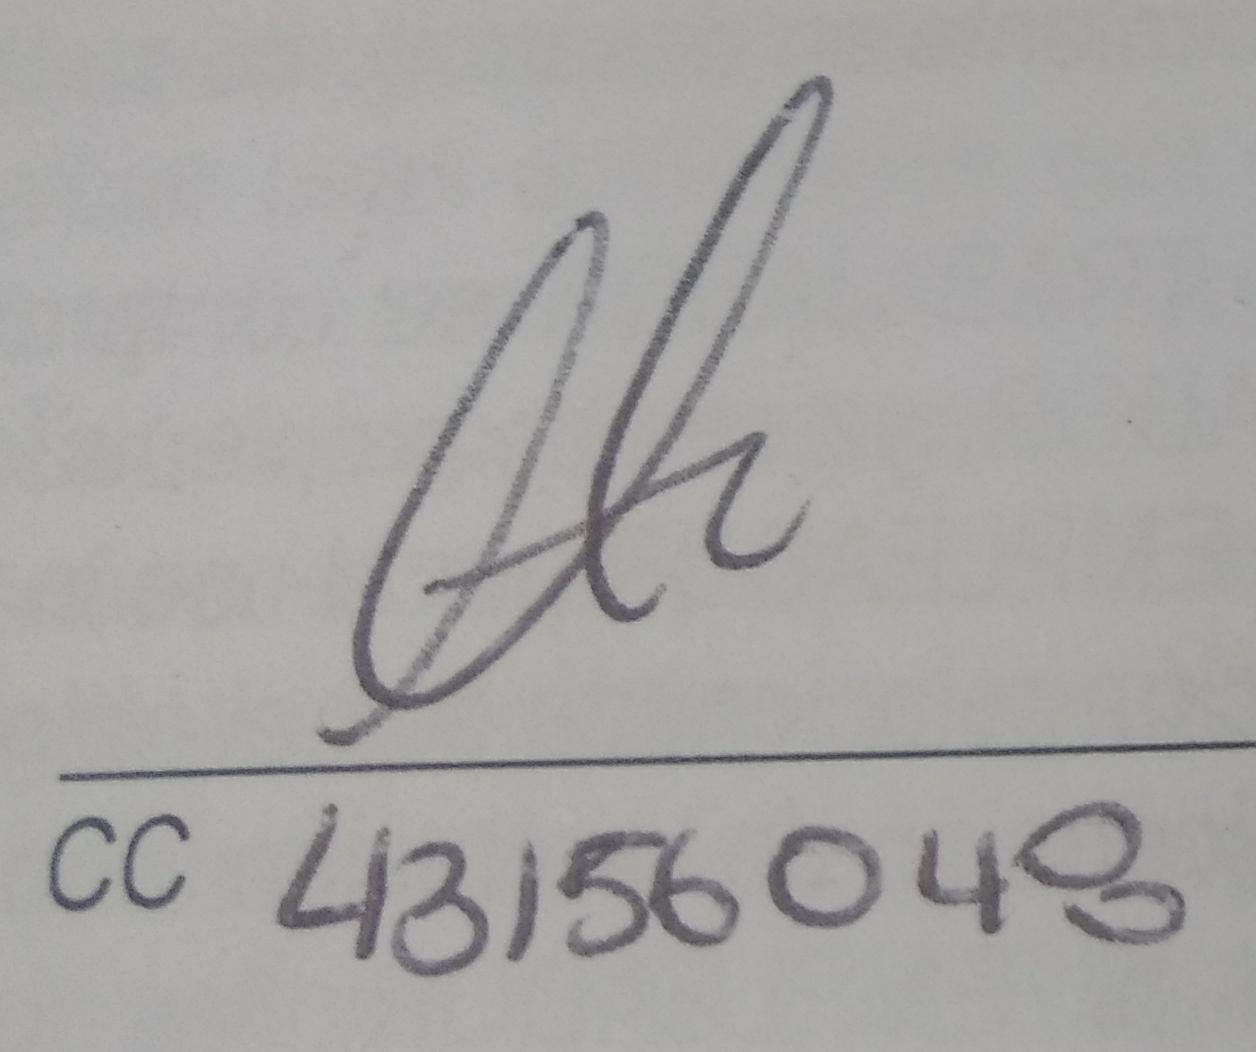 CC 43156048